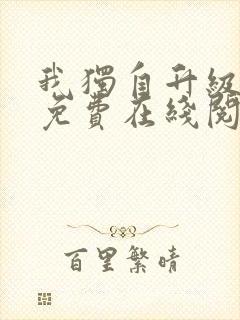 我獨自升級
免費在綫閱
百里繁晴